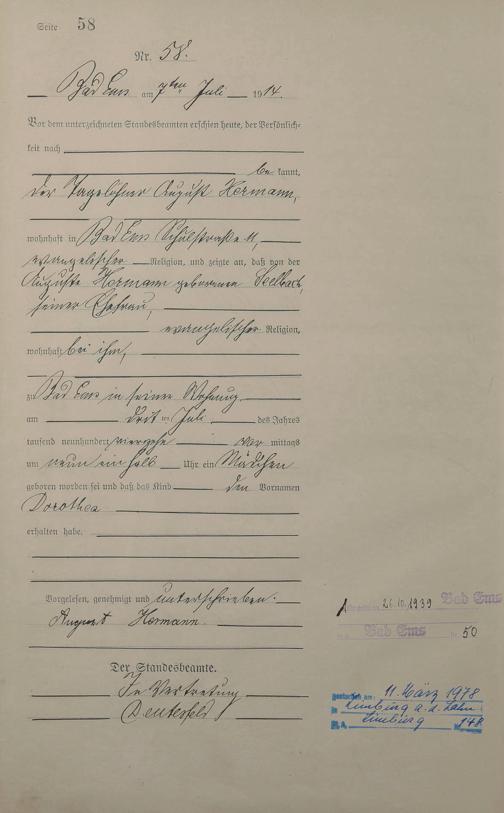 Seite 58
Nr. 58.
Bad Ems am 7ten Juli 1914.
Vor dem unterzeichneten Standesbeamten erschien heute, der Persönlich-
keit nach
be kannt,
der Tagelöhner August Hermann,
wohnhaft in Bad Ems Schulstraße 11,
evangelischer Religion, und zeigte an, daß von der
Auguste Hermann geborenen Seelbach,
seiner Ehefrau,
evangelischer Religion,
wohnhaft bei ihm,
zu Bad Ems in seiner Wohnung
am Juli des Jahres
tausend neunhundert vierzehn vor mittags
um neun ein halb Uhr ein Mädchen
geboren worden sei und daß das Kind den Vornamen
Dorothea
erhalten habe.
Vorgelesen, genehmigt und unterschrieben.
August Hermann
Der Standesbeamte.
In Vertretung
26.10.1939 Bad Ems
Bad Ems Nr. 50
gestorben am: 11. März 1978
in Limburg a. d. Lahn
St. A. Limburg 148